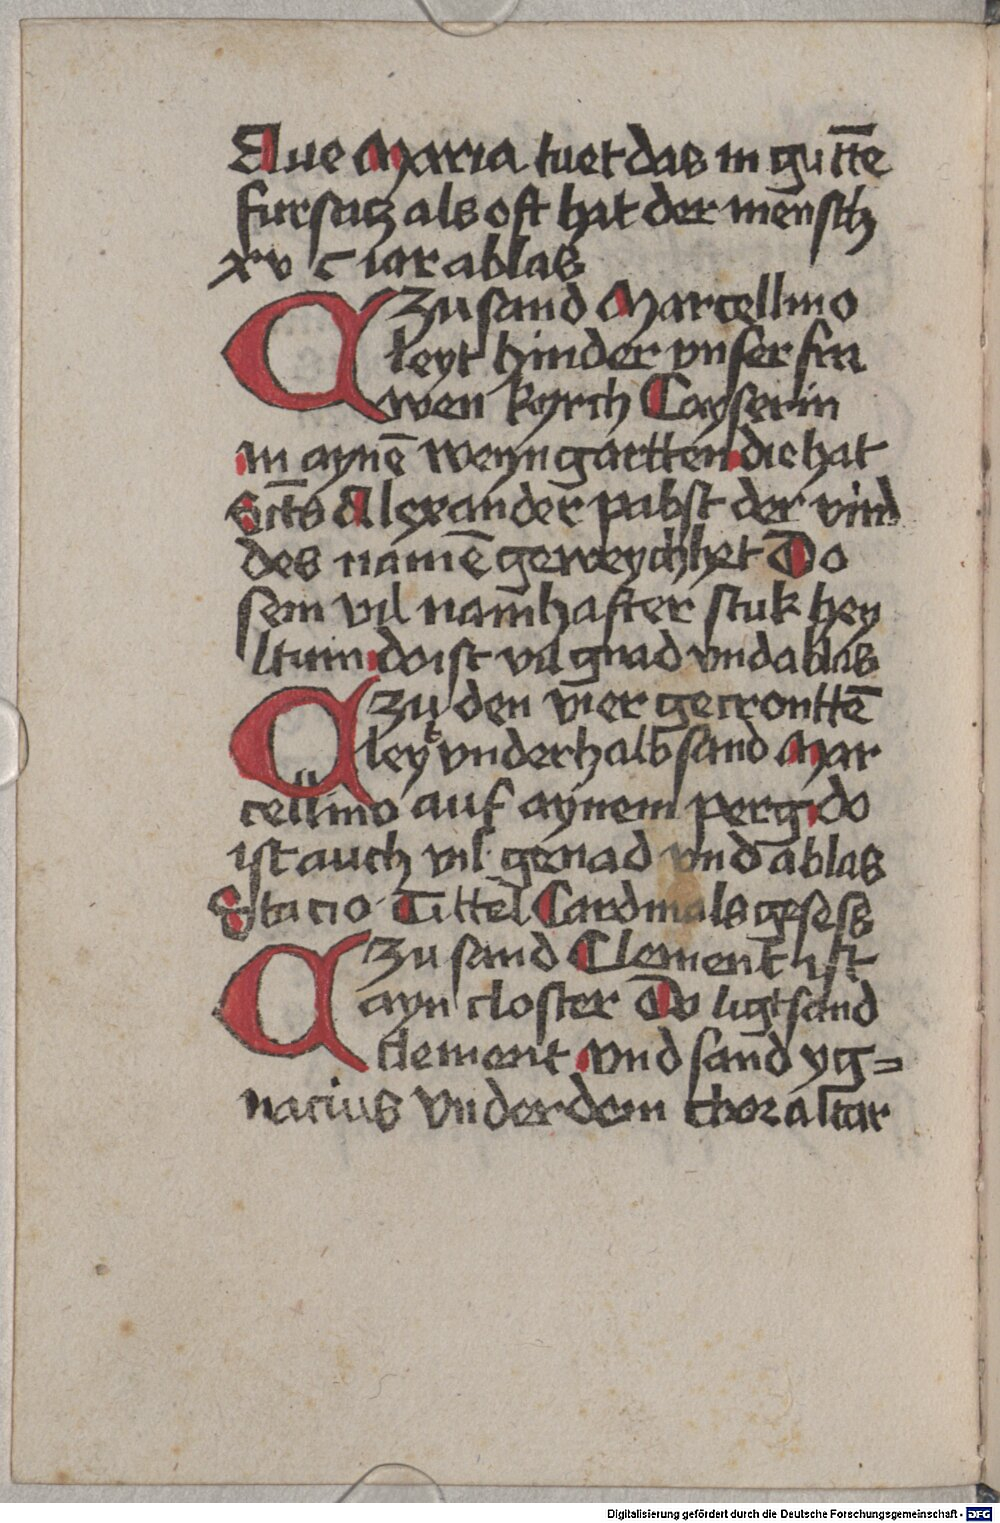 Aue Maria tuet das in guttē
fursacz als oft hat der mensch
xv C iar ablas
Zu sand Marcellino
leyt hinder vnser fra
wen kyrch Cayserin
in aynē weyngartten die hat
Sctˉs Alexander pabst der vird
des namē geweychhet Do
sein vil namhafter stuk hey
ltum do ist vil gnad vnd ablas
Zu den vier gecronttē
leyt vnderhalb sand Mar
cellino auf aynem perg do
ist auch vil genad vnd ablas
Stacio Tittel Cardinals gesess
Zu sand Clement ist
ayn closter Do ligt sand
Clement vnd sand yg=
nacius vnder dem chor altar
Digitalisierung gefördert durch die Deutsche Forschungsgemeinschaft - DFG